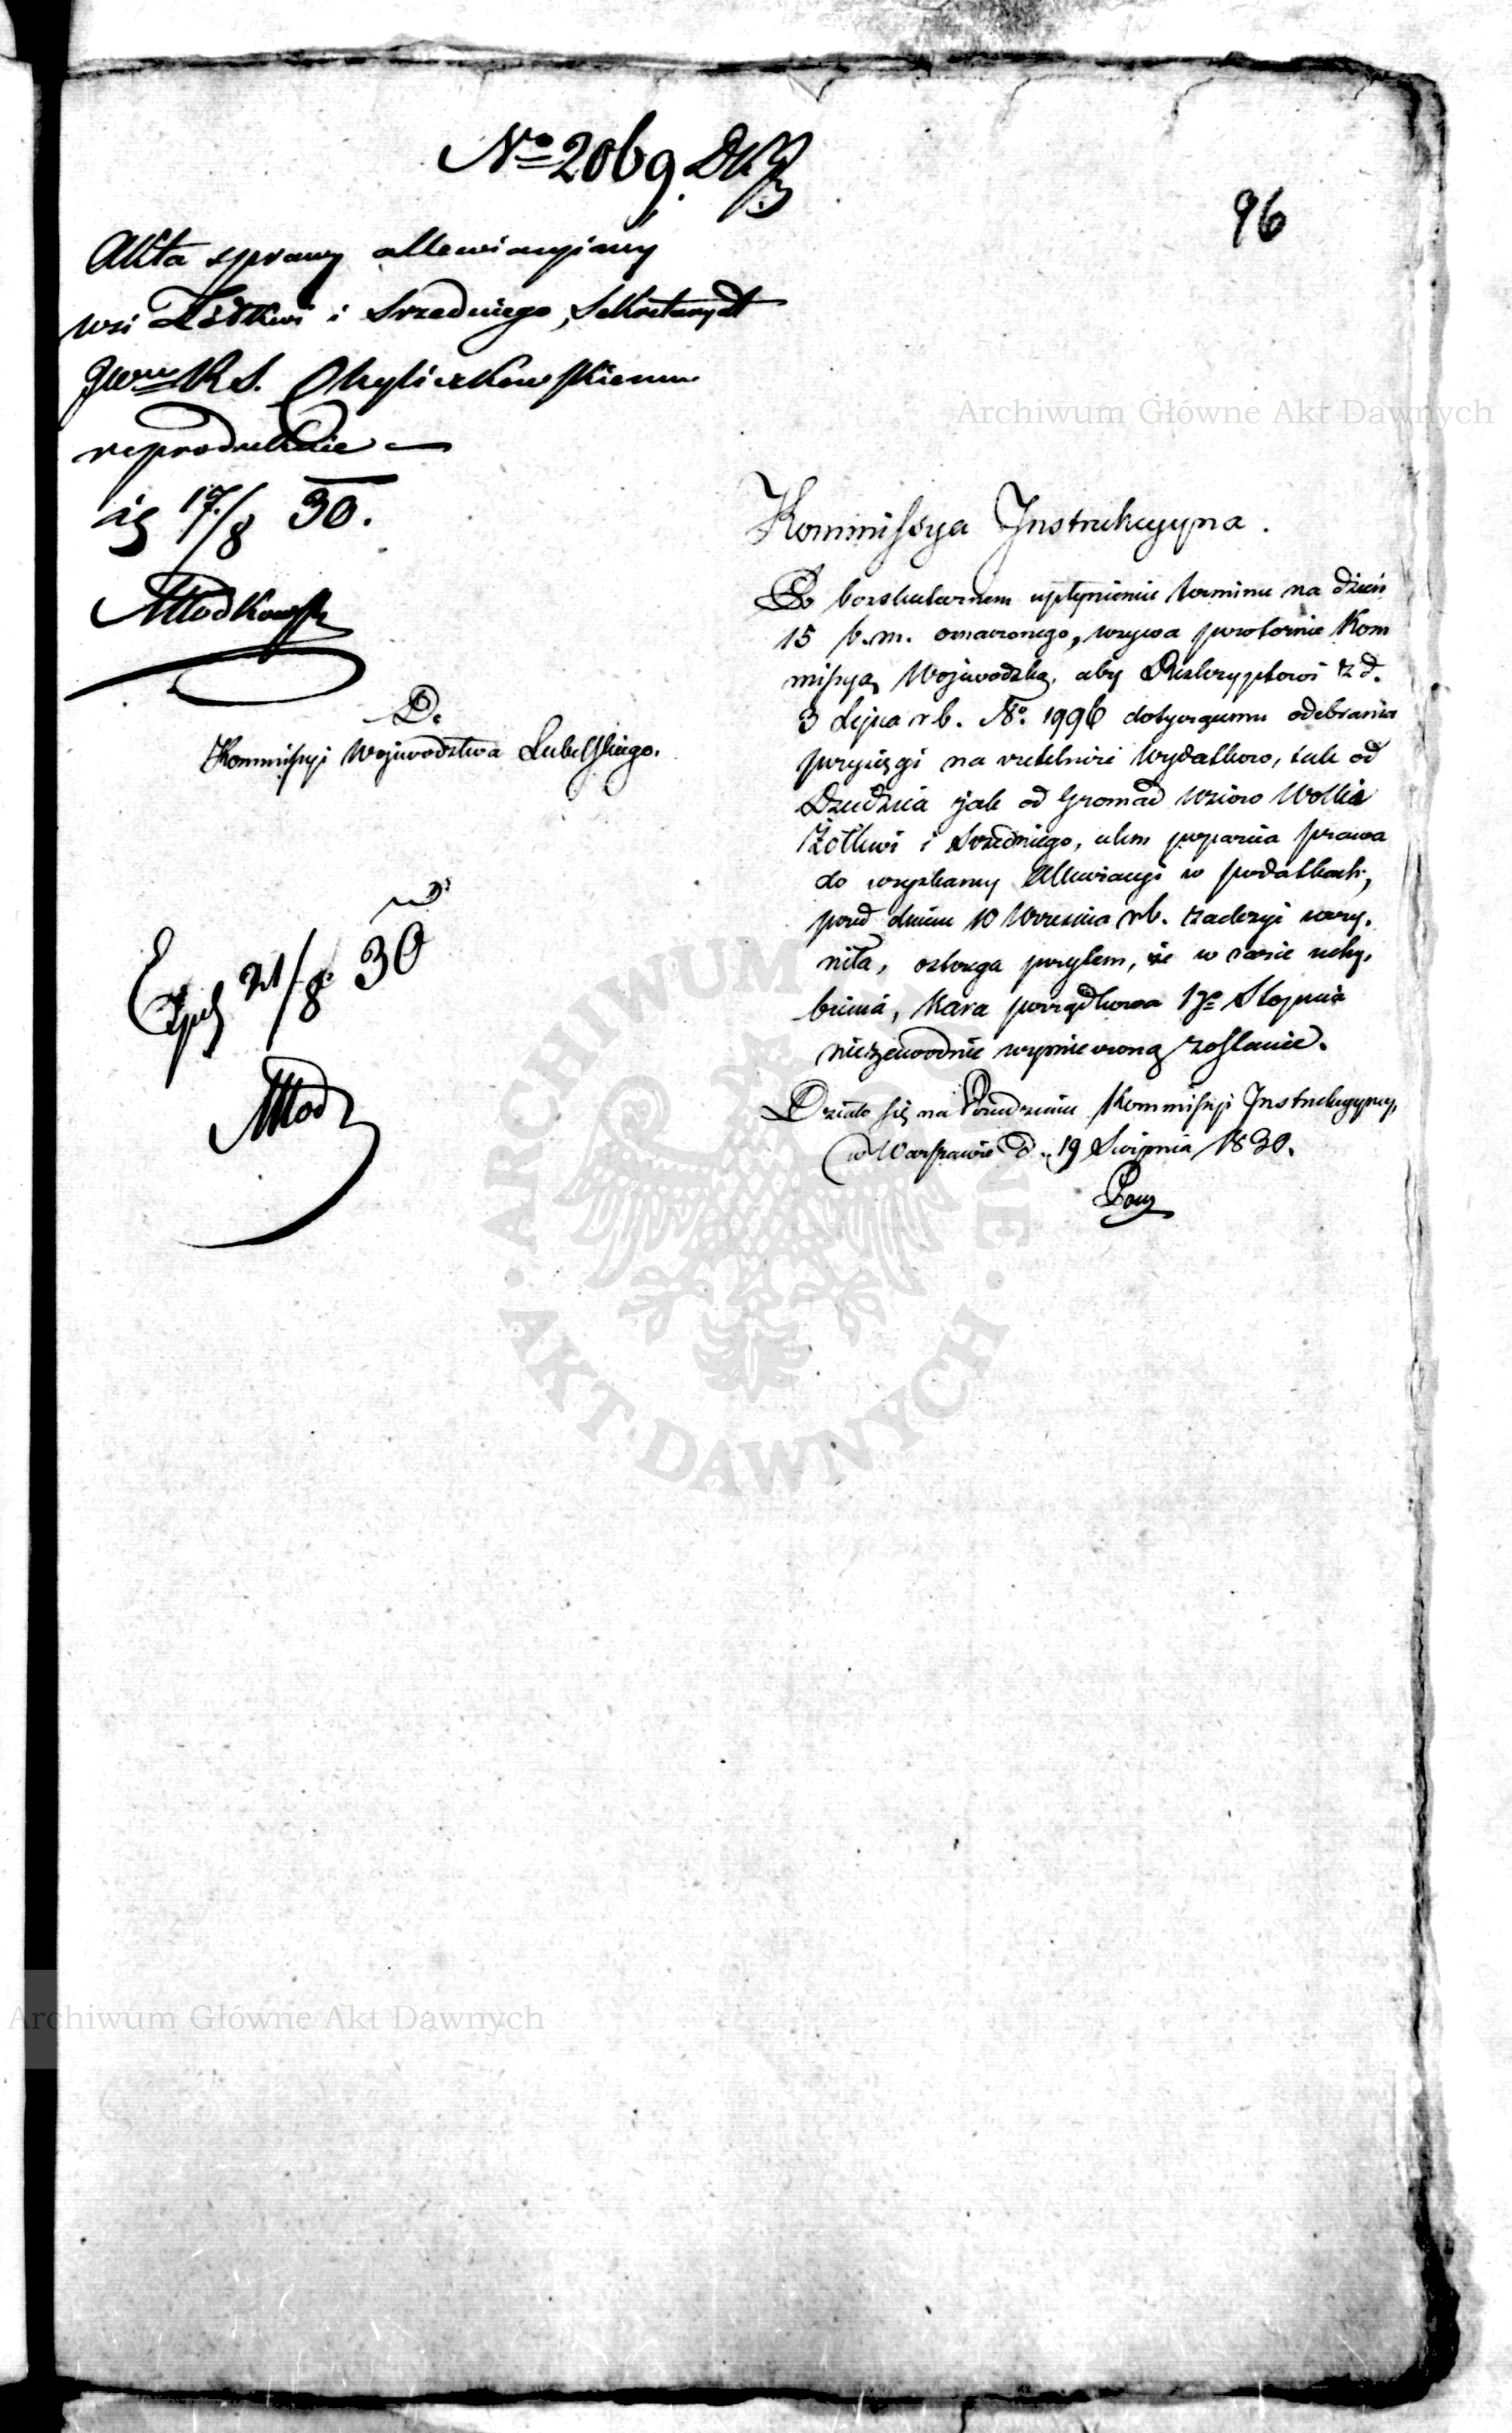 No 2069.
96
Akta sprawy allewiacyjney
wsi Żółtkwi i Srzedniego, Sekretarzowi
R. S. Chyliczkowskiemu
reprodukcie —
17/8 30.
Młodkowski
D.
Kommissyi Woiewodztwa Lubelskiego.
21/8 30
Młod
Kommissya Instrukcyyna.
Po bezskutecznem upłynieniu terminu na dzień
15 b. m. oznaczonego, wzywa powtornie Kom
missyą Wojewodzką, aby Reskryptowi z d.
3 Lipca r b. No. 1996 dotyczącemu odebrania
przysięgi na rzetelność wydatkow, tak od
Dziedzica jak od Gromad wsiow Wolki
Żółkwi i Srzedniego, celem poparcia prawa
do uzyskaney Allewiacyi w podatkach,
przed dniem 10 Września r b. zadosyć uczy,
niła, ostrzega przytem, że w razie uchy,
bienia, kara porządkowa 1go Stopnia
niezawodnie wymierzoną zostanie.
Działo się na Posiedzeniu Kommissyi Instrukcyyney,
w Warszawie d. 19 Sierpnia 1830.
Archiwum Główne Akt Dawnych
ARCHIWUM GŁÓWNE AKT DAWNYCH
Archiwum Główne Akt Dawnych